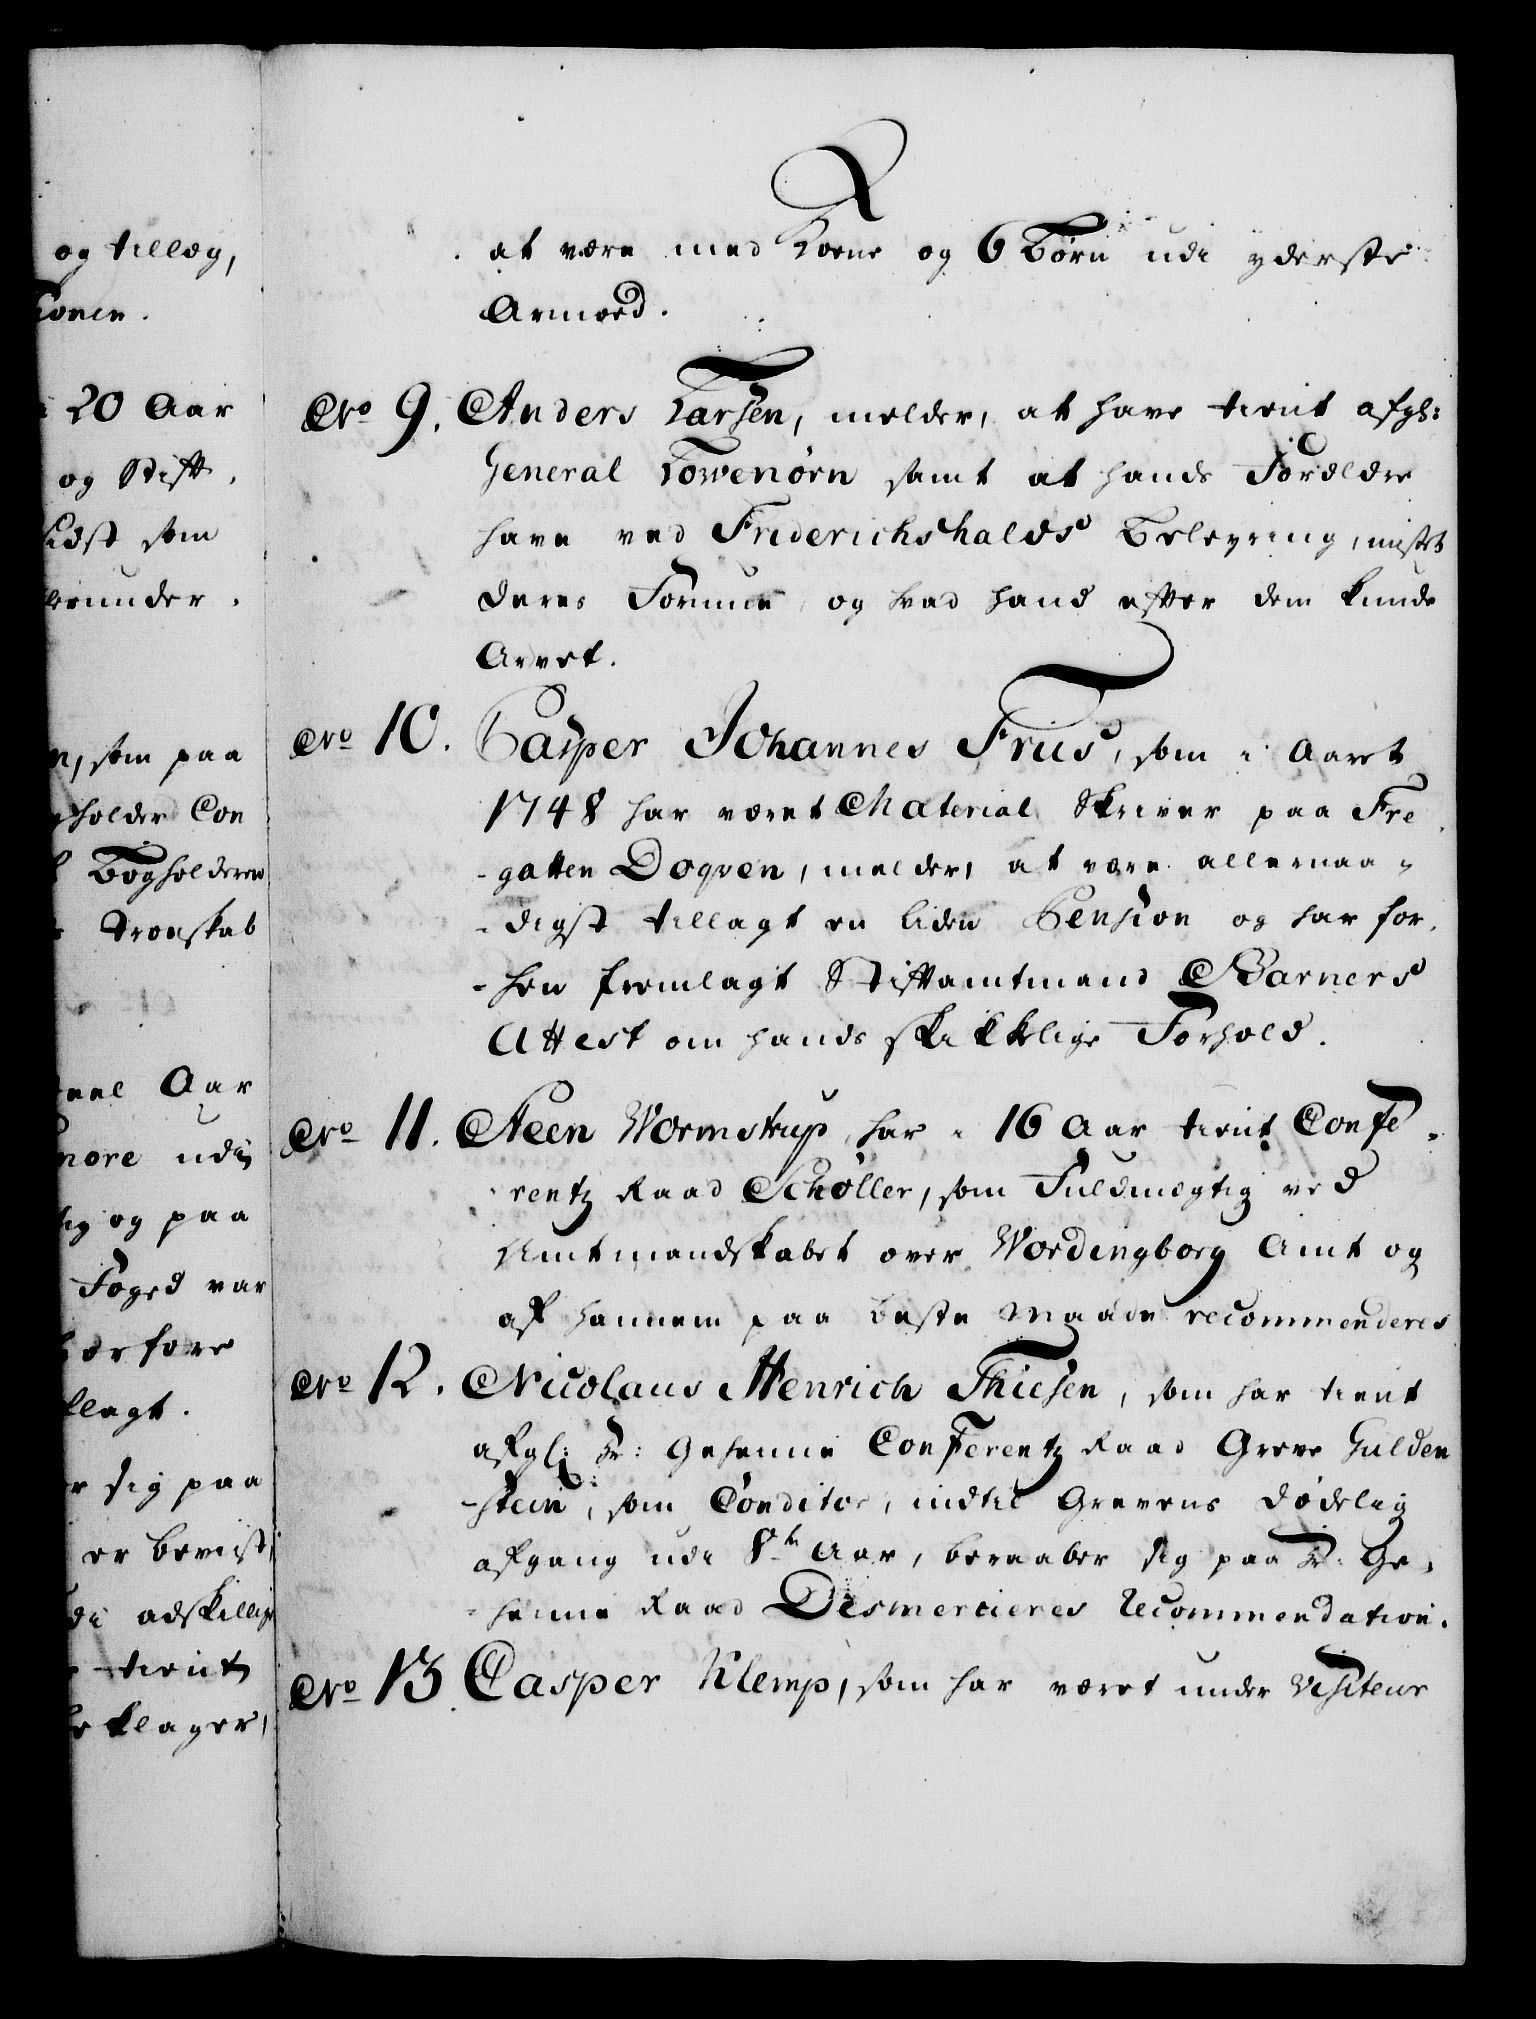 og tillæg,
konen.
20 Aar
og Stift.
sidst som
herunder.
n, som paa
holder Con
Bogholderen
Troeskab
Aar
more udi
tig og paa
Foged var
derfore
llagt.
r sig paa
er beviist,
di adskillige
tient
beklager,
at være med Kone og 6 Børn udi yderste
Armoed.
No 9. Anders Larsen, melder, at have tient afgl:
General Lowenørn samt at hands Forældre
have ved Friderichshalds Beleyring, mistet
deres Formue, og hvad hand efter dem kunde
Arvet.
No 10. Casper Johannes Friis, som i Aaret
1748 har været Material Skriver paa Fre
-gatten Doqven, melder, at være allernaa-
-digst tillagt en liden Pension og har for-
-hen fremlagt Stiftamtmand Barners
Attest om hands skikkelige Forhold.
No 11. Steen Wormstrup, har i 16 Aar tient Confe-
rentz Raad Schøller, som Fuldmægtig ved
Amtmandskabet over Wordingborg Amt og
af hannem paa beste Maade recommenderes
No 12. Nicolaus Henrich Thiesen, som har tient
afgl: Hr: Geheime Conferentz Raad Greve Gulden
-stein, som Conditor, indtil Grevens dødelig
afgang udi 8te Aar, beraaber sig paa Hr: Ge-
-heime Raad Desmercieres Recommendation.
No 13. Casper Klemp, som har været under Visiteur